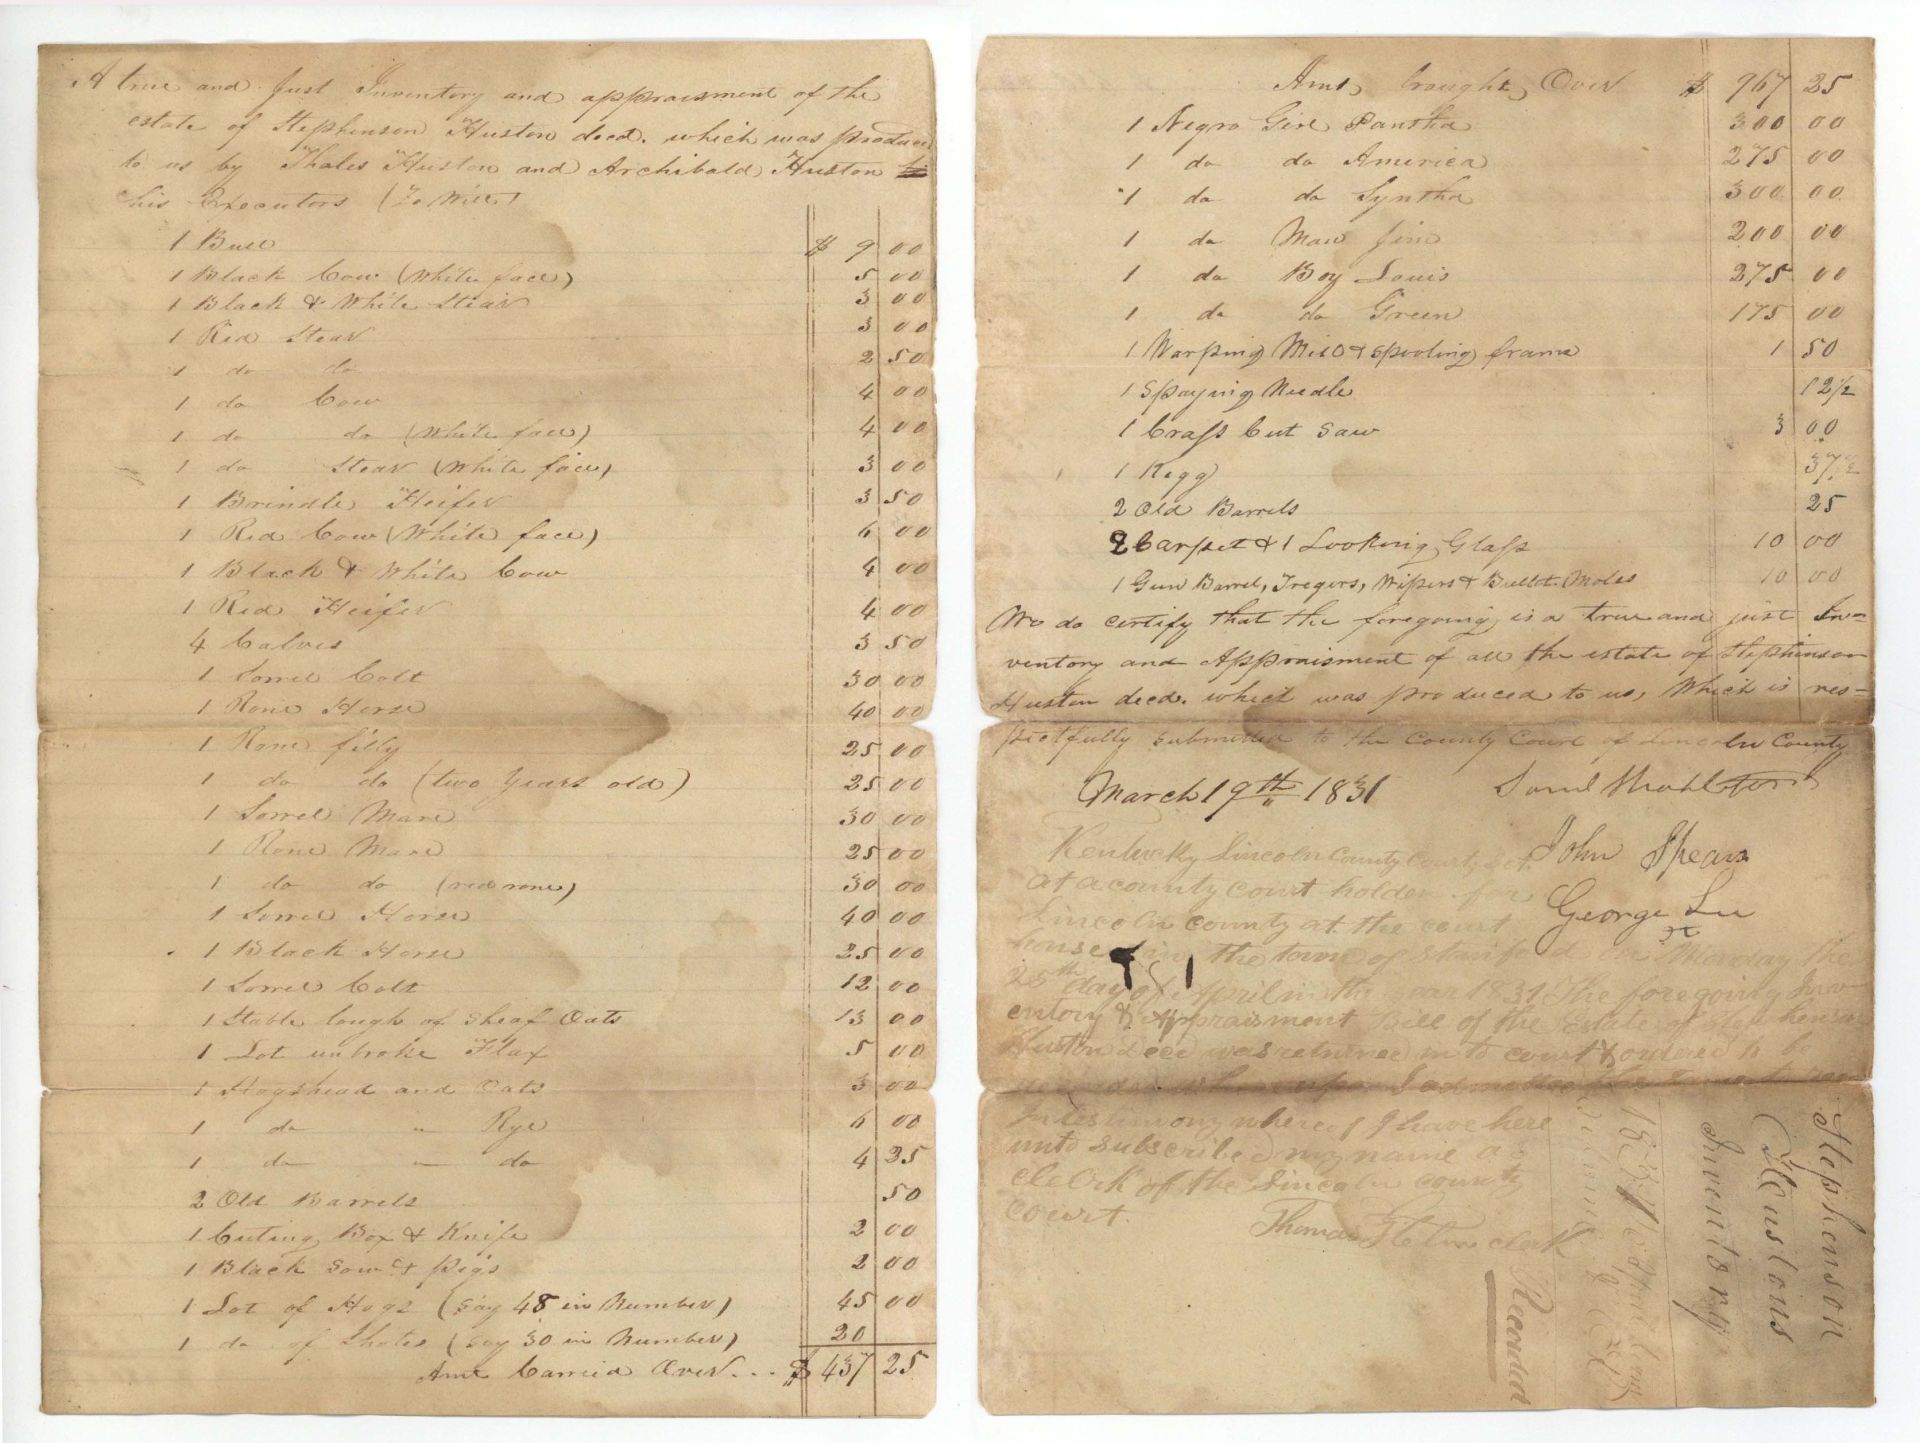 A true and Just Inventory and appraisment of the
estate of Stephinson Huston decd. which was produced
to us by Thales Huston and Archibald Huston
his Executors (To Witt)
1 Bull $ 9 00
1 Black Cow (White face) 5 00
1 Black & White Stear 3 00
1 Red Stear 3 00
1 do do 2 50
1 do Cow 4 00
1 do do (White face) 4 00
1 do Stear (White face) 3 00
1 Brindle Heifer 3 50
1 Red Cow (White face) 6 00
1 Black & White Cow 4 00
1 Red Heifer 4 00
4 Calves 3 50
1 Sorrel Colt 30 00
1 Rone Horse 40 00
1 Rone filly 25 00
1 do do (two years old) 25 00
1 Sorrel Mare 30 00
1 Rone Mare 25 00
1 do do (red rone) 30 00
1 Sorrel Horse 40 00
1 Black Horse 25 00
1 Sorrel Colt 12 00
1 Stable lough of Sheaf Oats 13 00
1 Lot unbroke Flax 5 00
1 Hogshead and Oats 3 00
1 do " Rye 6 00
1 do " do 4 25
2 Old Barrels 50
1 Cuting Box & Knife 2 00
1 Black Sow & pigs 2 00
1 Lot of Hogs (say 48 in Number) 45 00
1 do of Shotes (say 30 in Number) 20
Amt Carried Over... $ 437 25
Amt, brought, Over $ 967 25
1 Negro Girl Pantha 300 00
1 do do America 275 00
1 do do Syntha 300 00
1 do Man Jim 200 00
1 do Boy Louis 275 00
1 do do Green 175 00
1 Warping Mill & Spooling frame 1 50
1 Spaying Needle 12 1/2
1 Crass Cut Saw 3 00
1 Kegg 37 1/2
2 Old Barrels 25
2 Carpet & 1 Looking Glass 10 00
1 Gun Barrel, Tregers, Wipers & Bullet Moles 10 00
We do certify that the foregoing is a true and just In=
ventory and Appraisment of all the estate of Stephinson
Huston decd. which was produced to us, Which is res=
pectfully submitted to the County Court of Lincoln County
March 19th 1831
John Spears
George Lee
Kentucky Lincoln County Court, Sct.
At a county court holden for
Lincoln county at the court
house in the town of Stanford on Monday the
25th day of April in the year 1831 The foregoing Inv
entory & Appraisment Bill of the Estate of Stephenson
Huston decd was returned into court & ordered to be
In testimony whereof I have here
unto subscribed my name as
clerk of the Lincoln county
court.
Thomas Helm clerk
Recorded
Stephenson
Houstons
Inventory